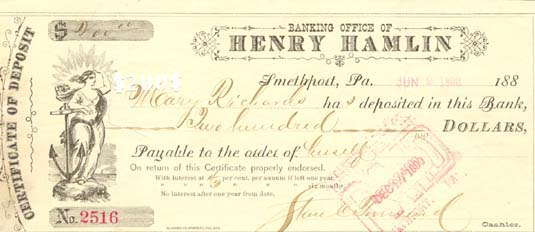 CERTIFICATE OF DEPOSIT
$
BANKING OFFICE OF
HENRY HAMLIN
Smethport, Pa. JUN 188
Mary Richards has deposited in this Bank,
Two hundred DOLLARS,
Payable to the order of herself
On return of this Certificate properly endorsed.
With interest at 5 per cent. per annum if left one year.
six months
No interest after one year from date.
No. 2516
Cashier.